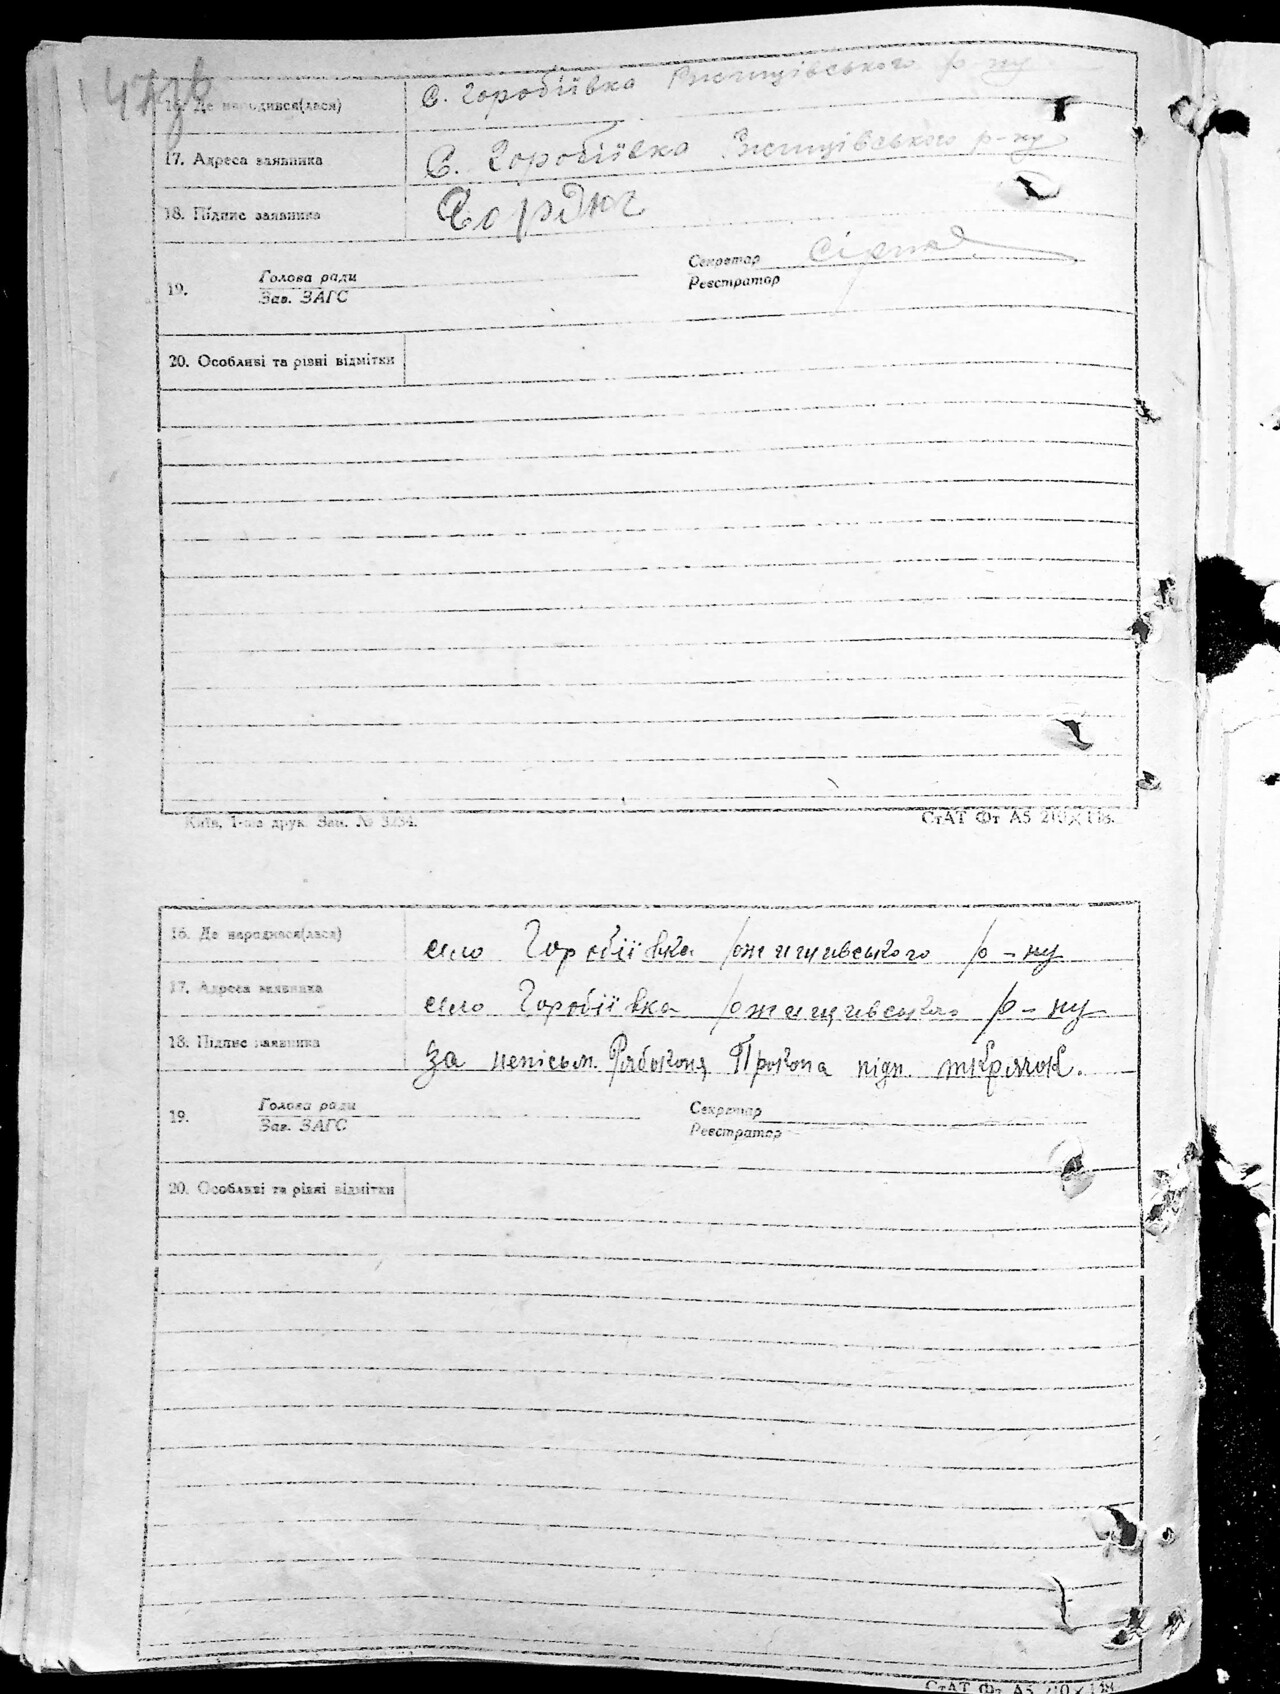 16. Де народився(лася) С. Горобіївка Ржищівського р-ну
17. Адреса заявника С. Горобіївка Ржищівського р-ну
18. Підпис заявника
19. Голова ради Секретар
Зав. ЗАГС Реєстратор
20. Особливі та різні відмітки
Київ, 1-ша друк. Зам. № 3234. СтАТ Фт А5 210×148.
16. Де народився(лася) село Горобіївка ржищивського р-ну
17. Адреса заявника село Горобіївка ржищивського р-ну
18. Підпис заявника за неписьм. Рябоконя Прокопа підп.
19. Голова ради Секретар
Зав. ЗАГС Реєстратор
20. Особливі та різні відмітки
СтАТ Фт А5 210×148